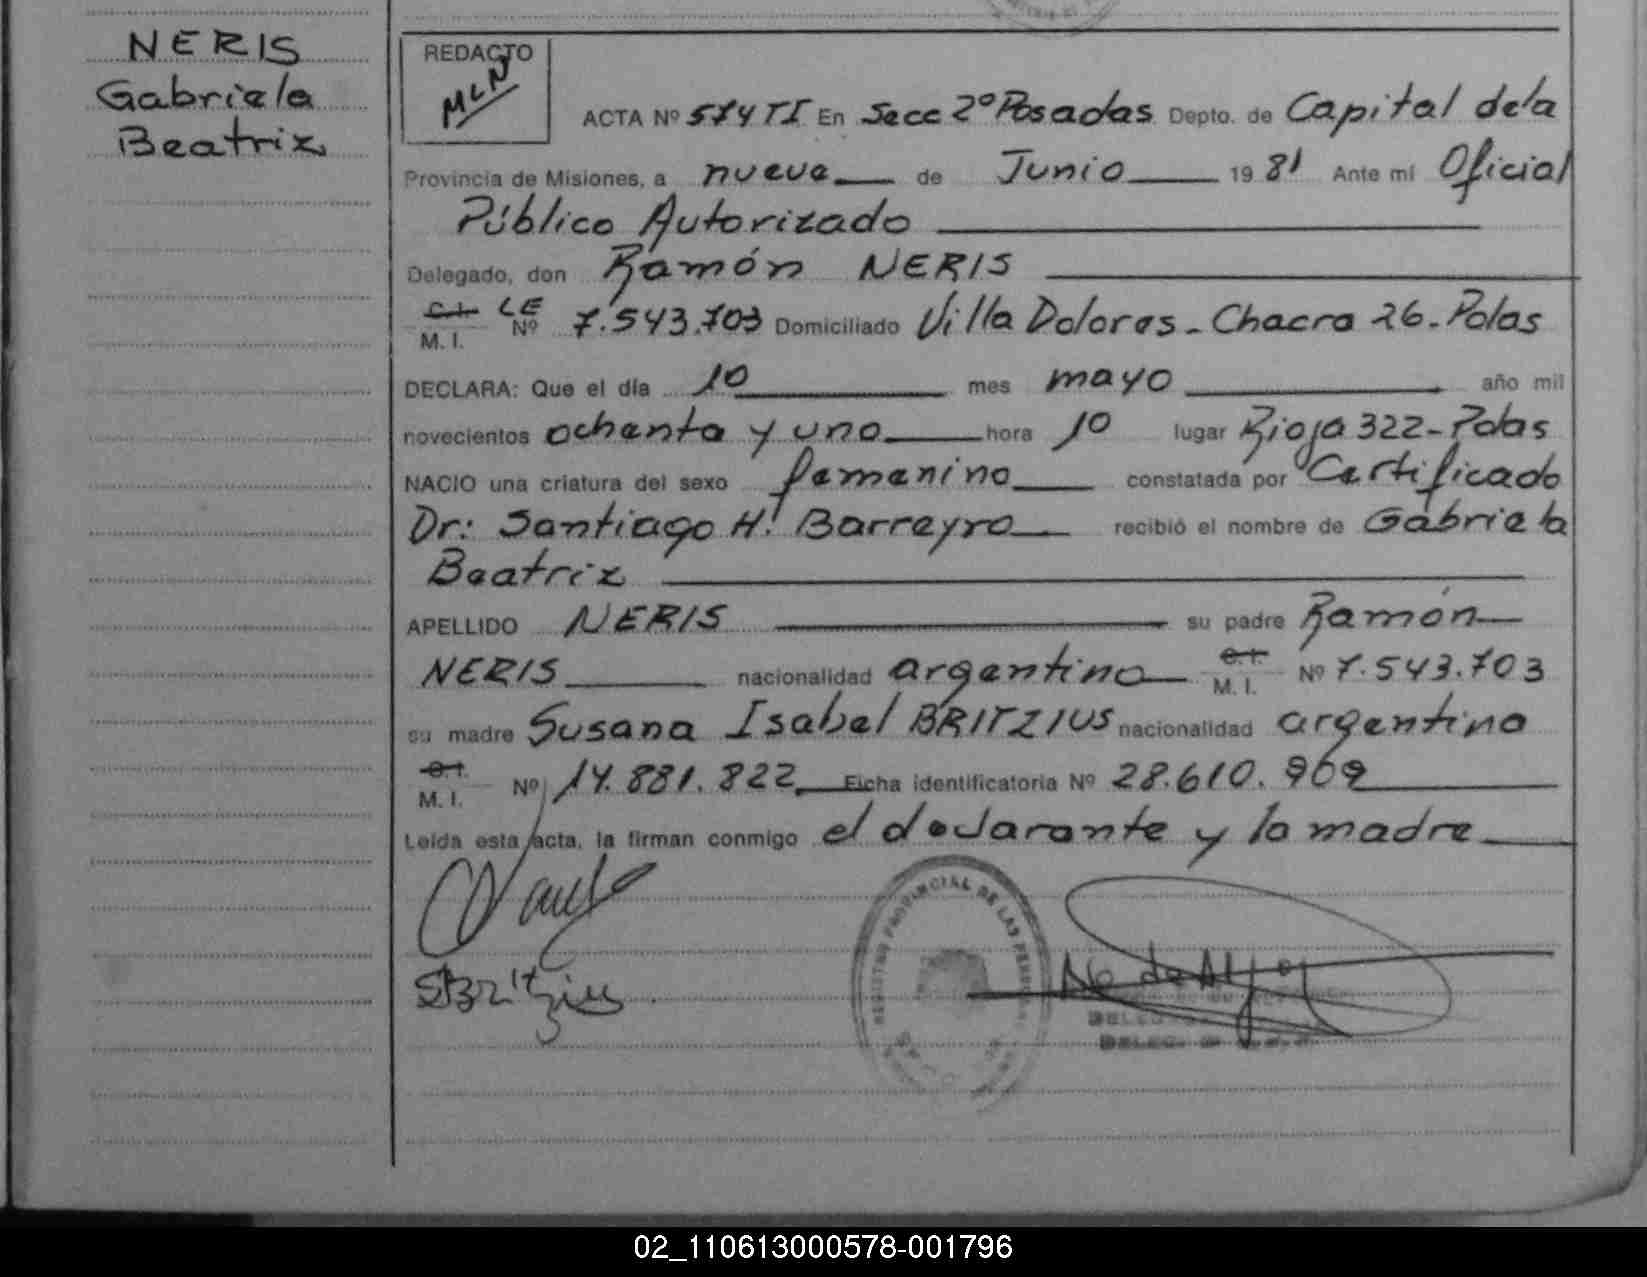 NERIS
Gabriela
Beatriz
REDACTO
MLN
ACTA Nº 574 TI En Secc 2º Posadas Depto. de Capital de la
Provincia de Misiones, a nueve de Junio 19 81 Ante mi Oficial
Público Autorizado
Delegado, don Ramón NERIS
C.I. LE
M. I. Nº 7.543.703 Domiciliado Villa Dolores - Chacra 26 - Pdas
DECLARA: Que el día 10 mes mayo año mil
novecientos ochenta y uno hora 10 lugar Rioja 322 - Pdas
NACIO una criatura del sexo femenino constatada por Certificado
Dr: Santiago H. Barreyro recibió el nombre de Gabriela
Beatriz
APELLIDO NERIS su padre Ramón
NERIS nacionalidad argentino C.I. M. I. Nº 7.543.703
su madre Susana Isabel BRITZIUS nacionalidad argentina
C.I. M. I. Nº 14.881.822 Ficha identificatoria Nº 28.610.969
Leída esta acta, la firman conmigo el declarante y la madre
SBritzius
REGISTRO PROVINCIAL DE LAS PERSONAS
02_110613000578-001796